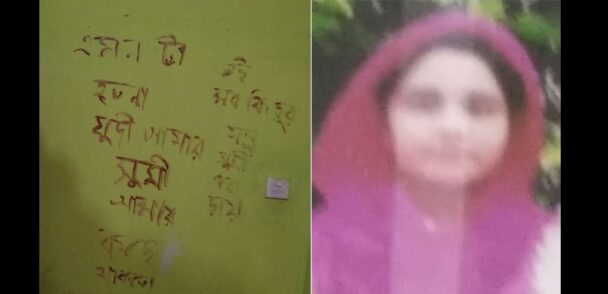 এমন টা
হতনা
যুদী আমার
সুমী
আমার
কাছে
থাকতো
এই
সব কিছুর
জন্ন
সুমী
দায়